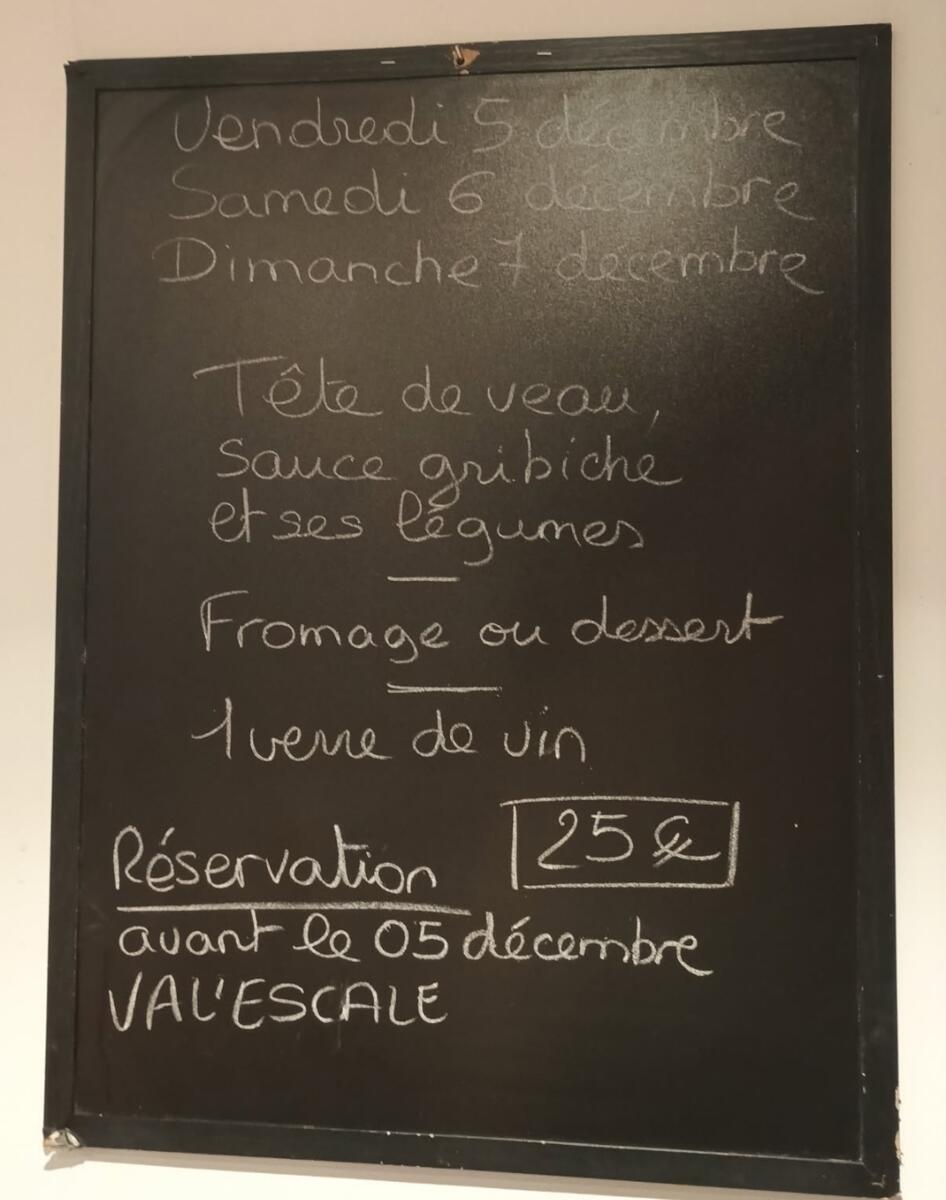 Vendredi 5 décembre
Samedi 6 décembre
Dimanche 7 décembre
Tête de veau,
sauce gribiche
et ses légumes
Fromage ou dessert
1 verre de vin
25 €
Réservation
avant le 05 décembre
VAL'ESCALE